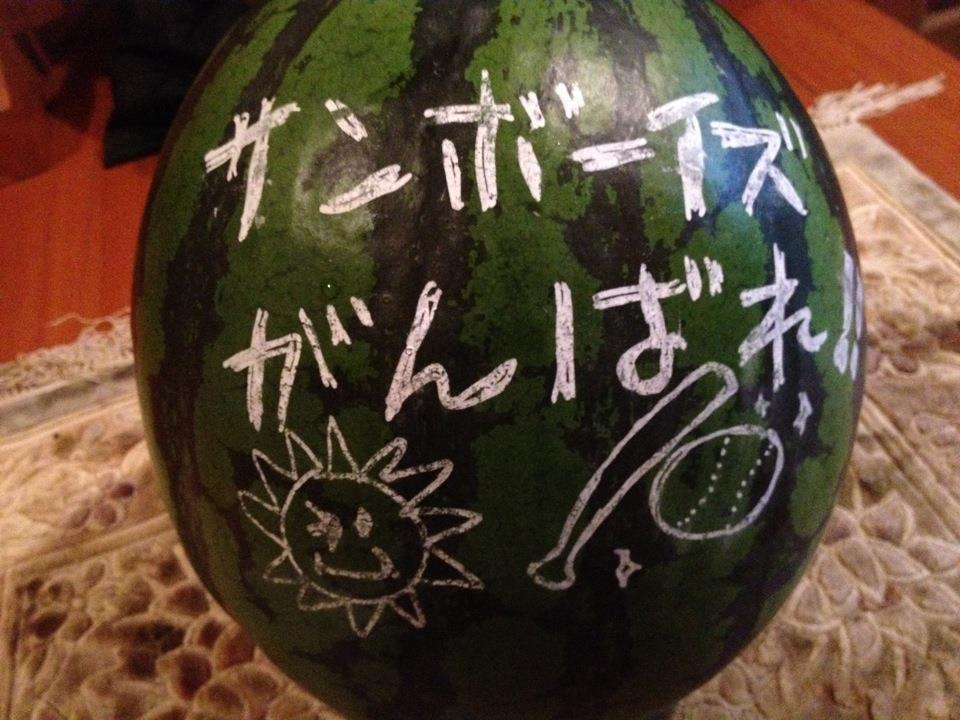 サンボーイズ
がんばれ!!